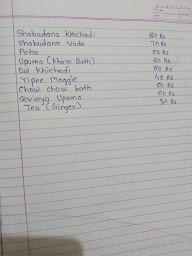 Shabudana Khichadi 60 Rs
Shabudana Vada 70 Rs
Poha 50 Rs
Upama (Khara Bath) 60 Rs
Dal Khichadi 60 Rs
Yipee Maggie 40 Rs
Chow chow bath 50 Rs
Sevaiya Upama 60 Rs
Tea (Ginger) 30 Rs